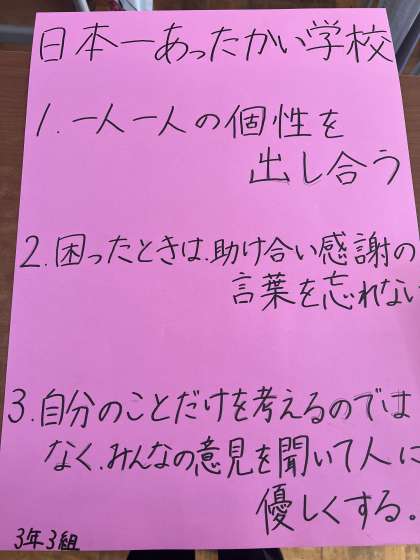 日本一あったかい学校
1. 一人一人の個性を
出し合う
2. 困ったときは、助け合い感謝の
言葉を忘れない
3. 自分のことだけを考えるのでは
なく、みんなの意見を聞いて人に
優しくする。
3年3組